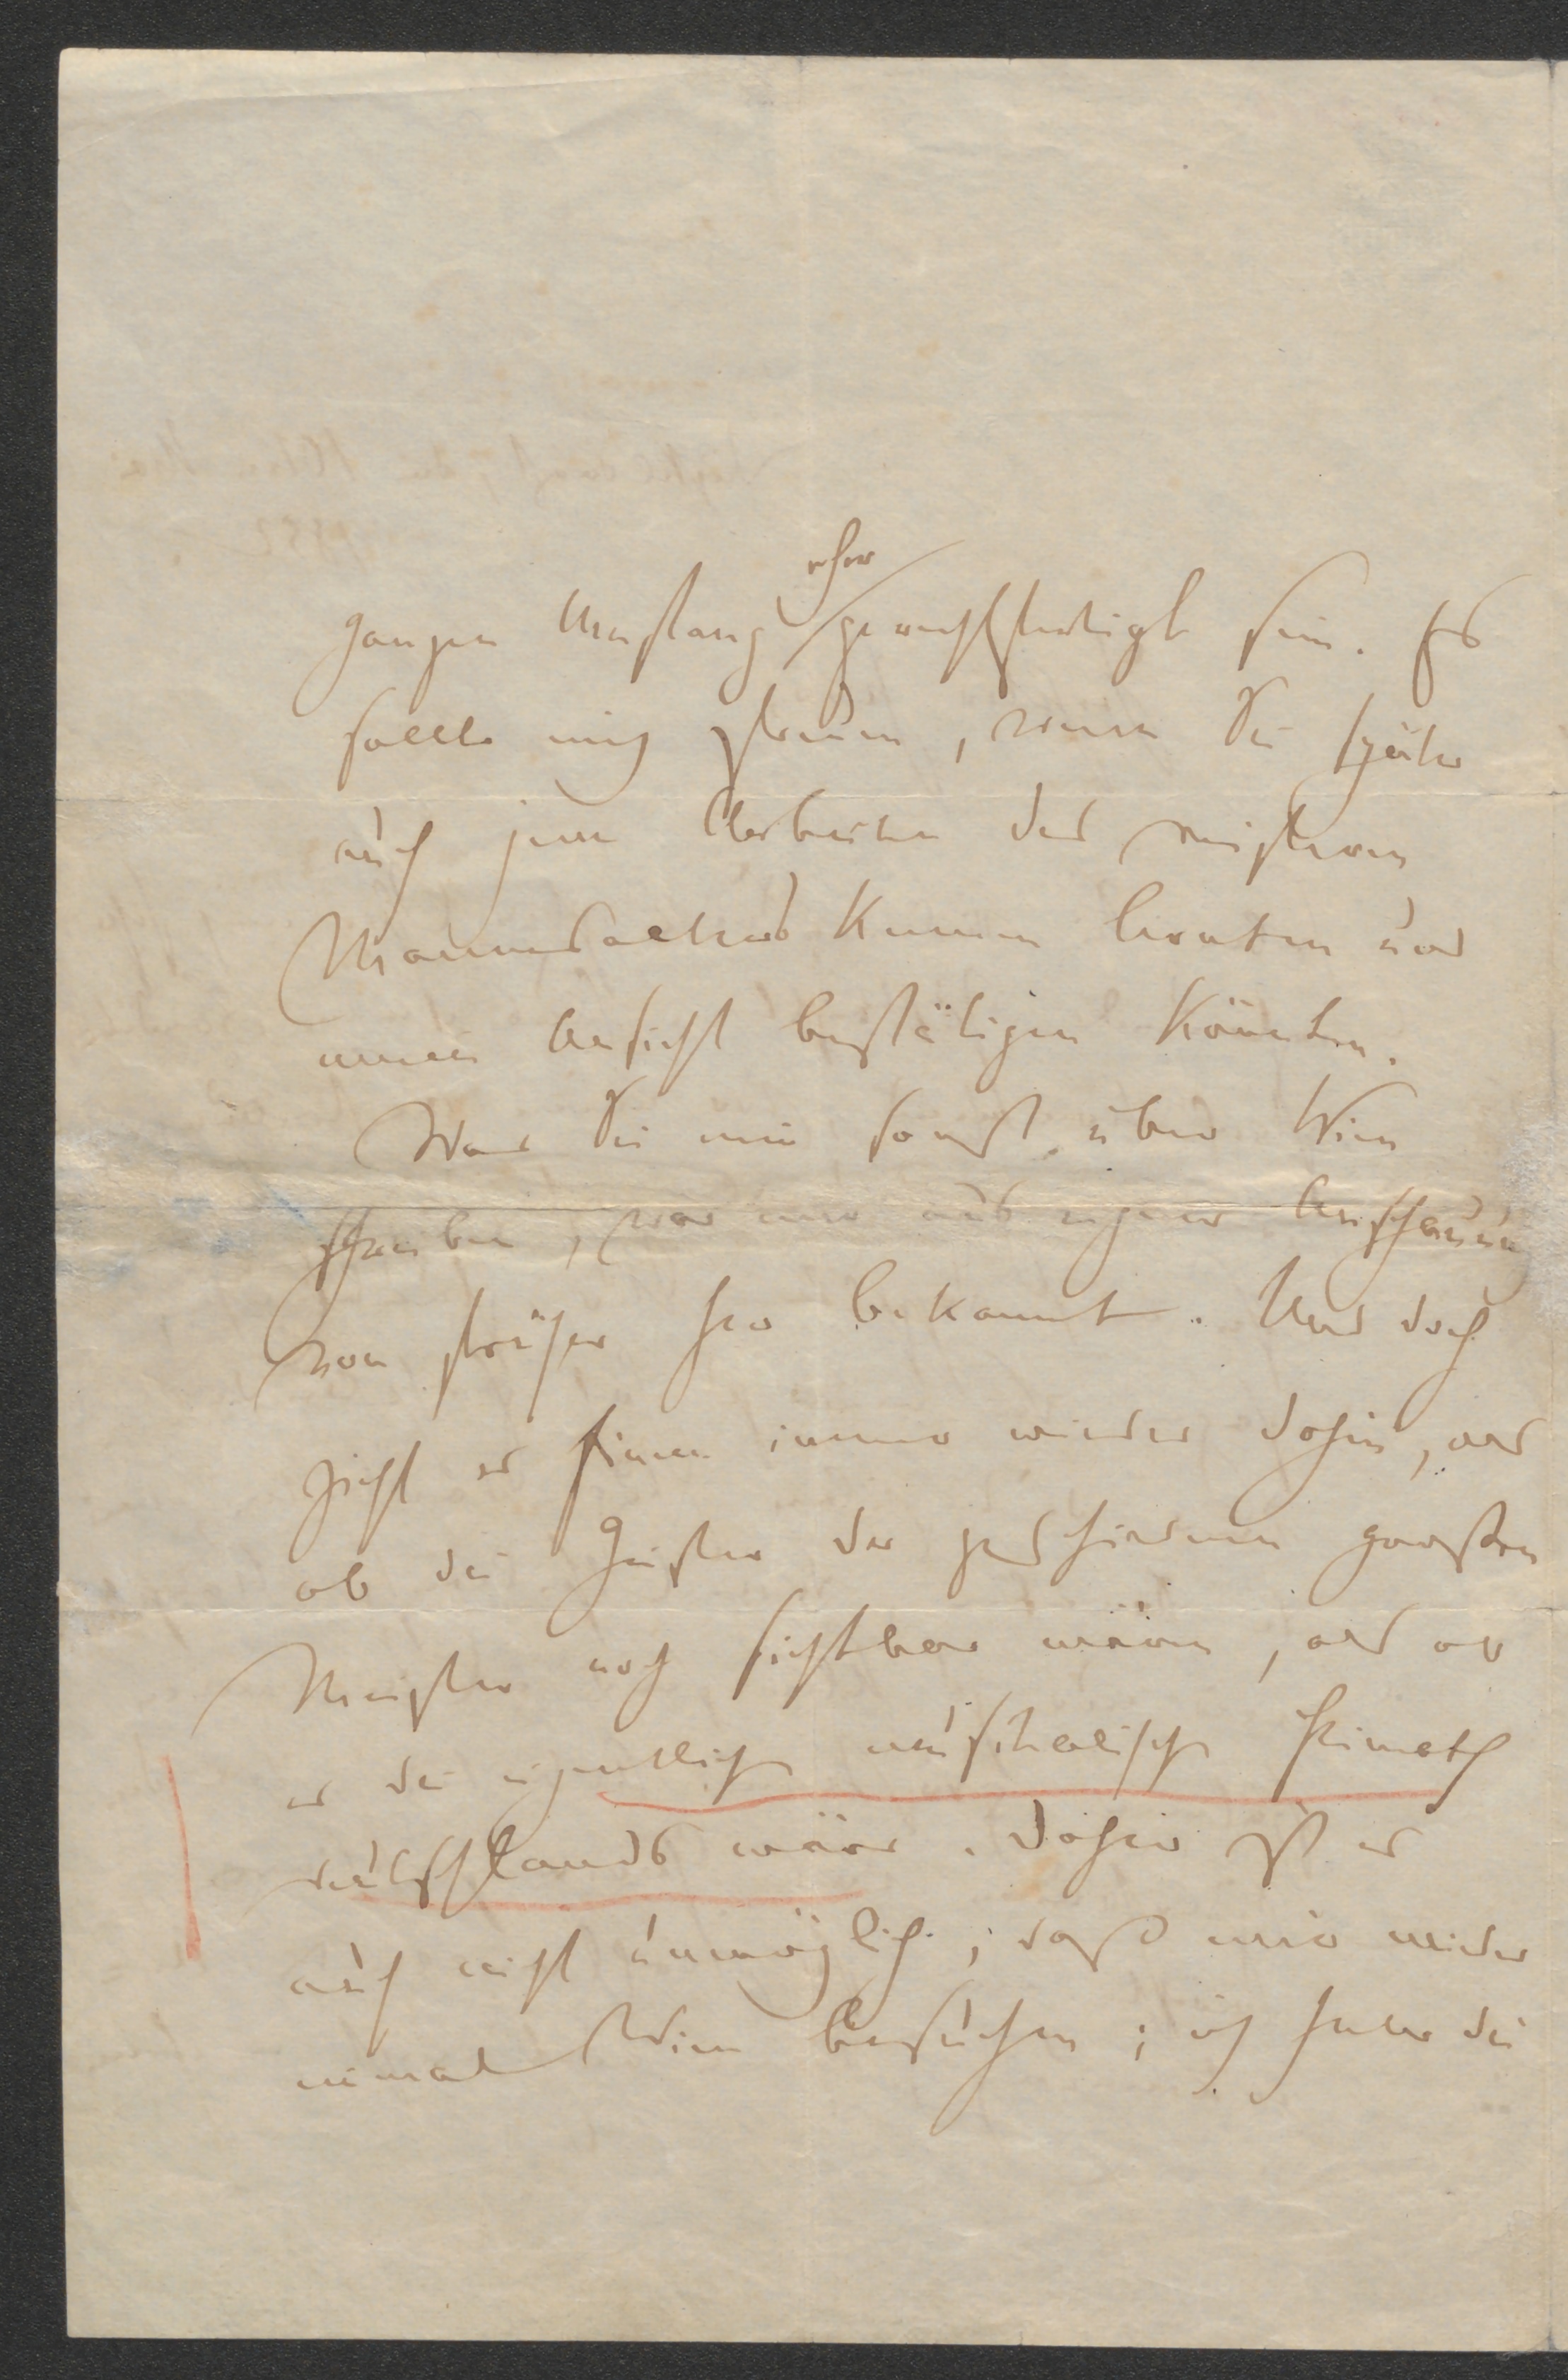 ganzen Umfang eher gerechtfertigt sein. Es
sollte mich freuen, wenn Sie später
auch jene Arbeiten des reiferen
Mannesalters kennen lernten und
meine Ansicht bestätigen könnten.
Was Sie mir sonst über Wien
schreiben, war mir aus eigener Anschauung
von früher her bekannt. Und doch
zieht es Einen immer wieder dahin, als
ob die Geister der geschiedenen großen
Meister noch sichtbar wären, als ob
es die eigentliche musikalische Heimath
Deutschlands wäre. Daher ist es
auch nicht unmöglich, daß wir wieder
einmal Wien besuchen; ich habe die